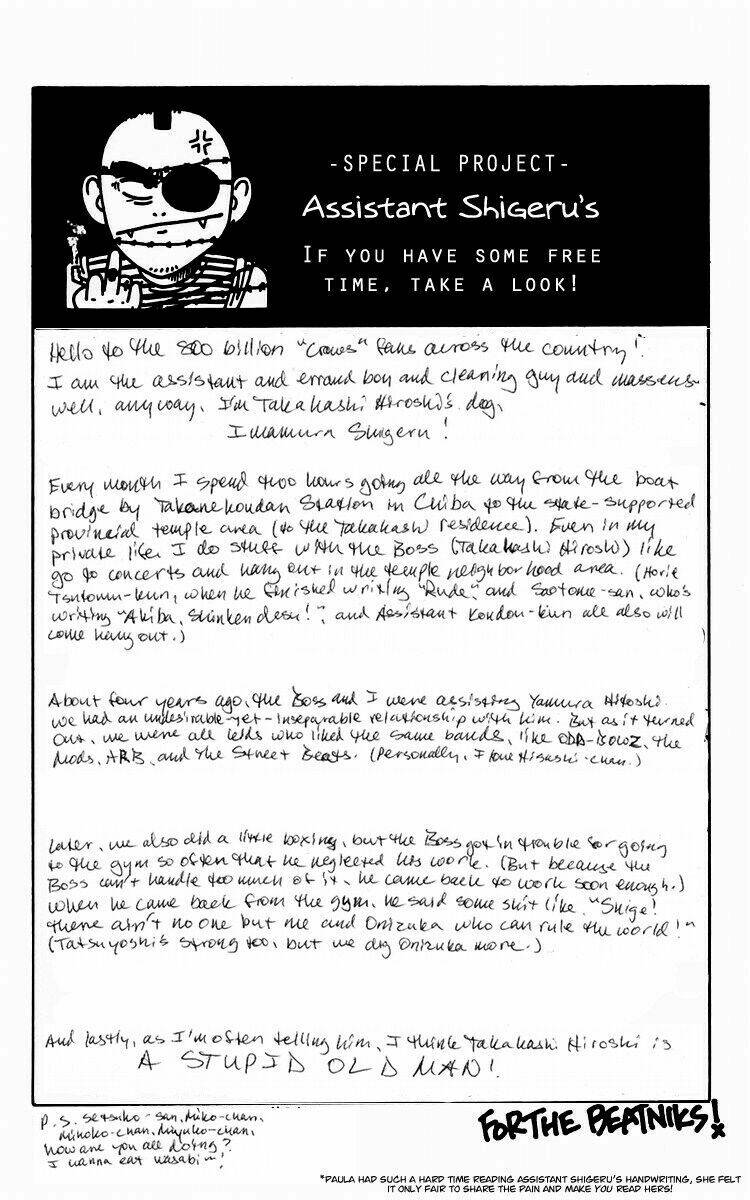 -SPECIAL PROJECT-
Assistant Shigeru's
IF YOU HAVE SOME FREE
TIME, TAKE A LOOK!
Hello to the 800 billion "Crows" fans across the country!
I am the assistant and errand boy and cleaning guy and masseus-
well, anyway, I'm Takahashi Hiroshi's dog,
Imamura Shigeru!
Every month I spend two hours going all the way from the boat
bridge by Takanekoudan Station in Chiba to the state-supported
provincial temple area (to the Takahashi residence). Even in my
private life I do stuff with the Boss (Takahashi Hiroshi) like
go to concerts and hang out in the temple neighborhood area. (Horie
Tsutomu-kun, when he finished writing "Rude" and Saotome-san, who's
writing "Akiba, Shinken desu!", and Assistant Kondou-kun all also will
come hang out.)
About four years ago, the Boss and I were assisting Yamura Hitoshi.
We had an undesirable-yet-inseparable relationship with him. But as it turned
out, we were all kids who liked the same bands, like the
Mods, ARB, and the Street Beats. (Personally, I love Hisashi-chan.)
Later, we also did a little boxing, but the Boss got in trouble for going
to the gym so often that he neglected his work. (But because the
Boss can't handle too much of it, he came back to work soon enough.)
When he came back from the gym, he said some shit like "Shige!
There ain't no one but me and Onizuka who can rule the world!"
(Tatsuyoshi's strong too, but we dig Onizuka more.)
And lastly, as I'm often telling him, I think Takahashi Hiroshi is
A STUPID OLD MAN!
P.S. Setsuko-san, Miko-chan,
Mihoko-chan, Miyuko-chan,
how are you all doing?
I wanna eat wasabi~!
FOR THE BEATNIKS!
*PAULA HAD SUCH A HARD TIME READING ASSISTANT SHIGERU'S HANDWRITING, SHE FELT
IT ONLY FAIR TO SHARE THE PAIN AND MAKE YOU READ HERS!